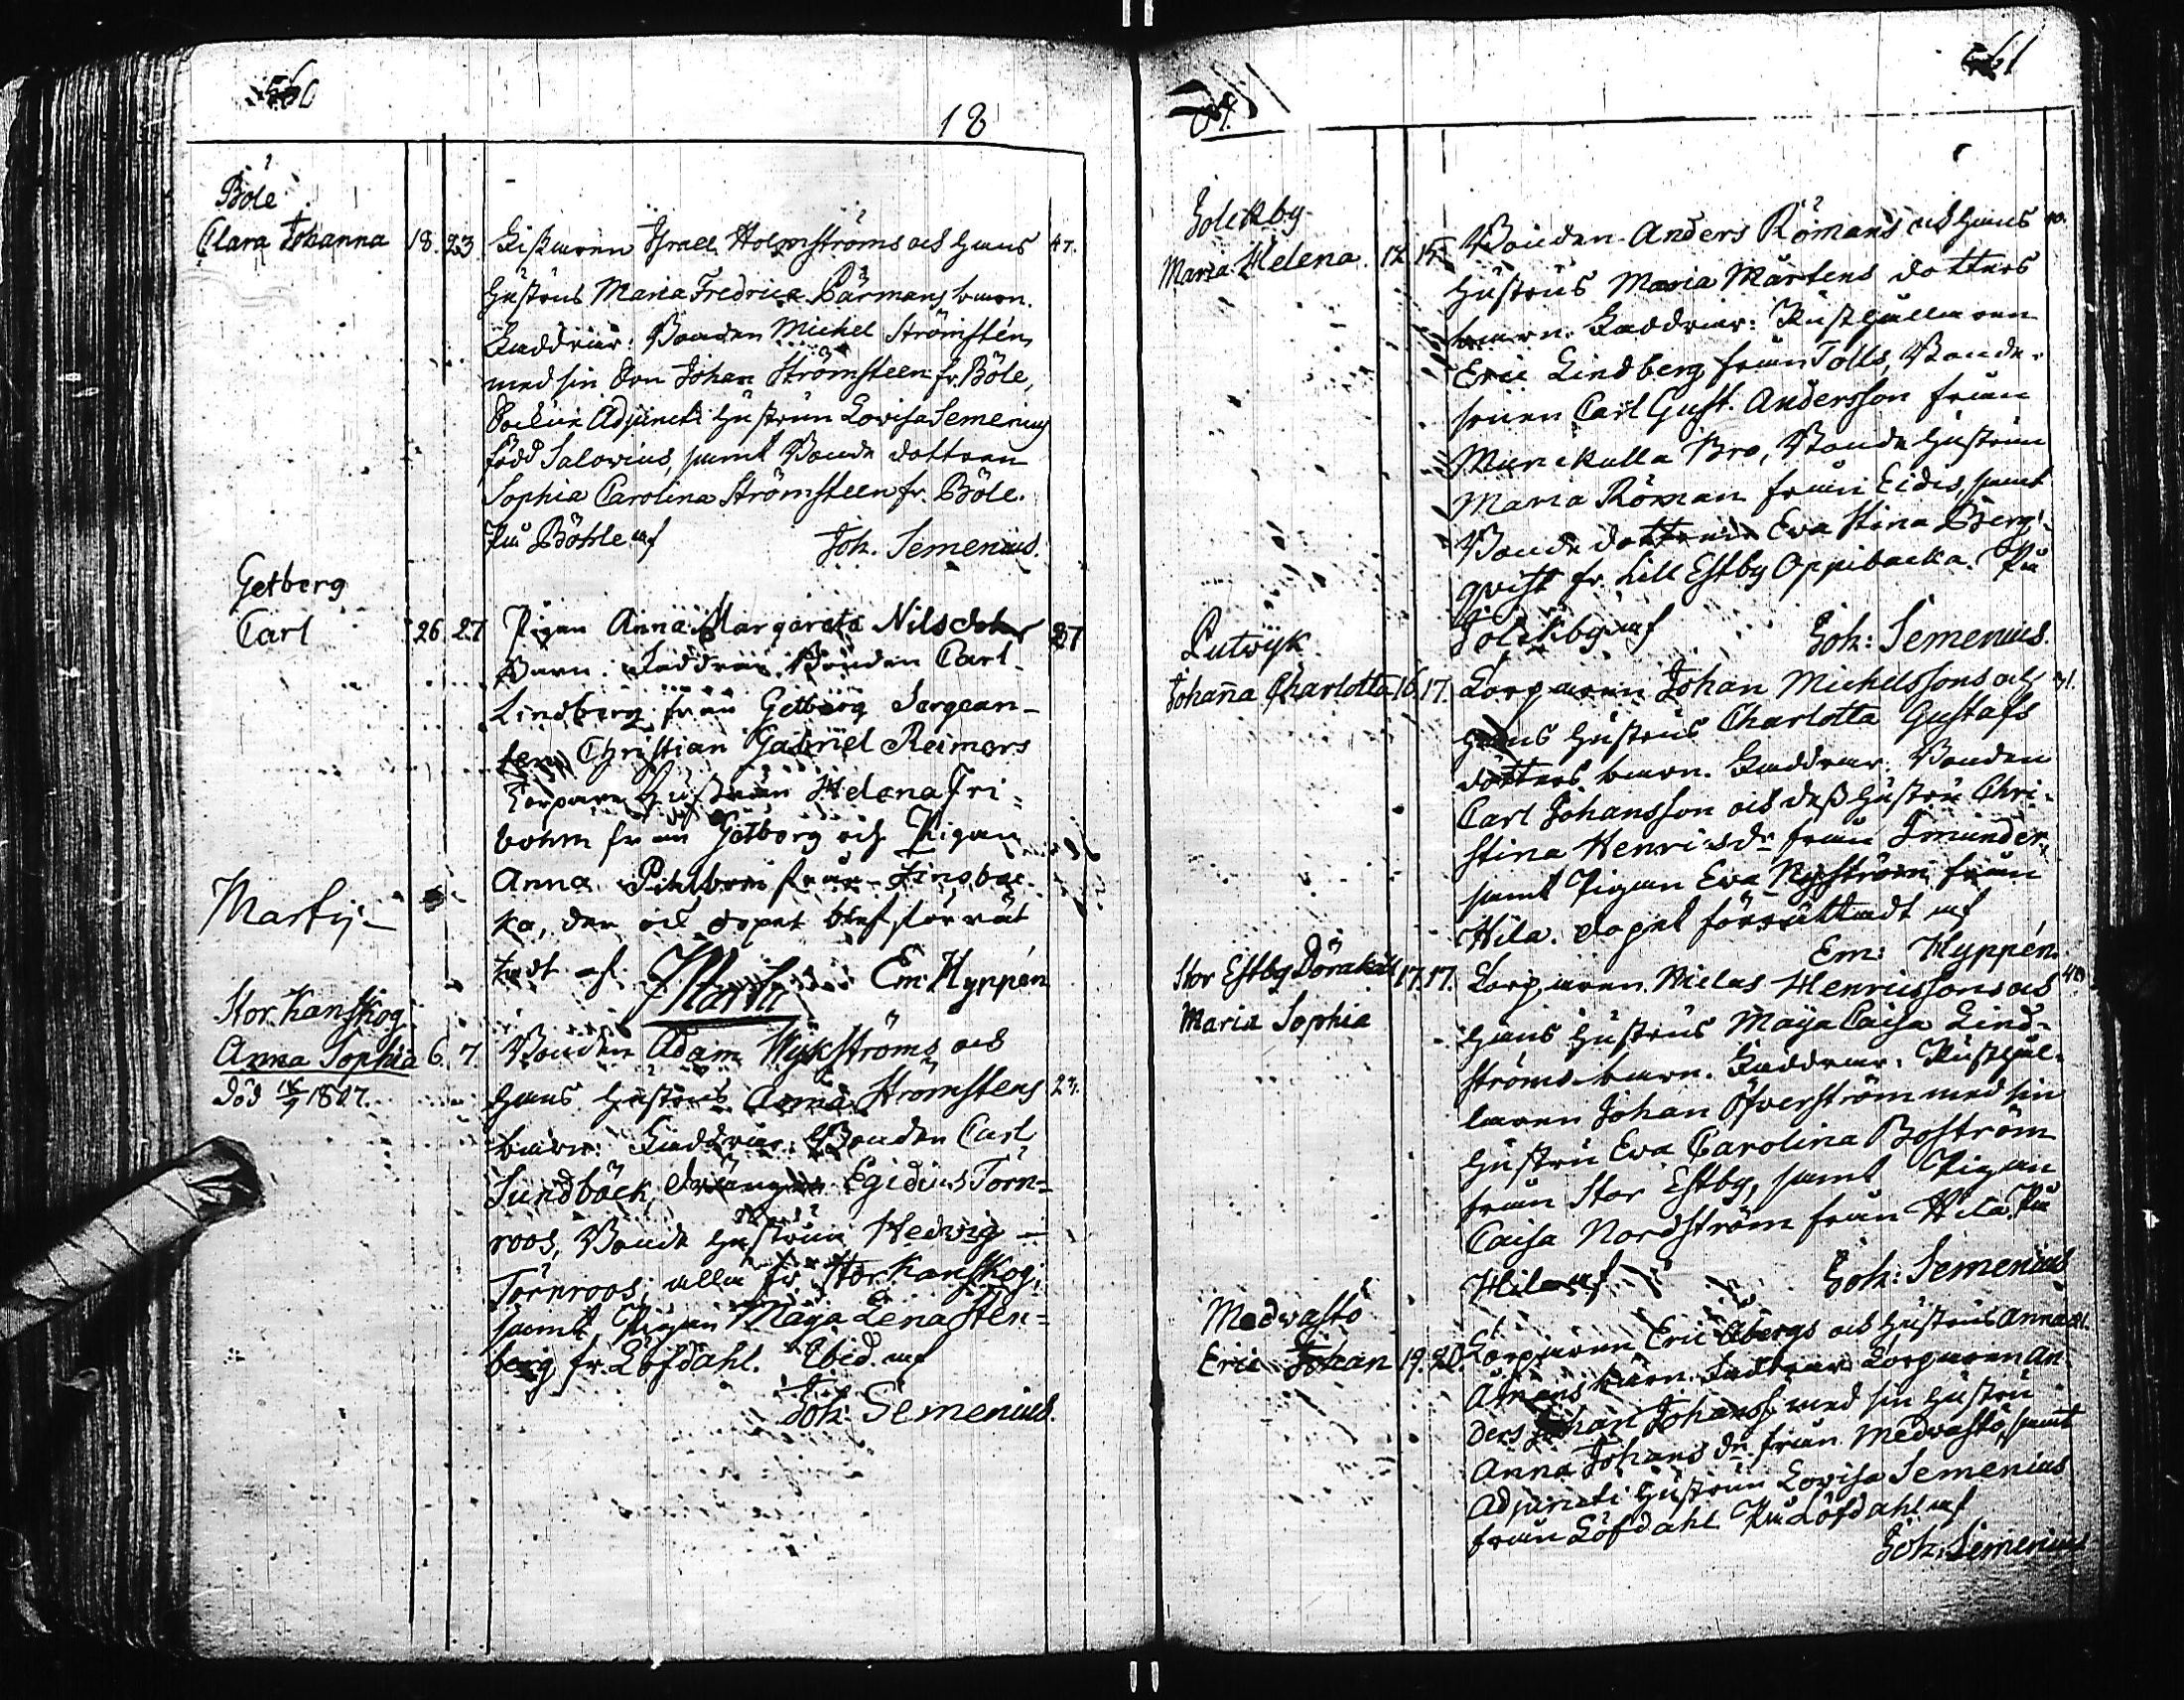 560
18
Böle
Clara Johanna 18. 23. Fiskaren Israel Holmströms och hans 47.
hustrus Maria Fredrica Bärmans barn.
Faddrar: Bonden Michel Strömstén,
med sin Son Johan Strömsteen fr. Böle,
Sockne Adjuncts hustrun Lovisa Semenius
född Salovius, samt Bonde dottren
Sophia Carolina Strömsteen fr. Böle.
På Böhle af Joh. Semenius.
Getberg
Carl 26. 27 Pigan Anna Margareta Nilsdoter 37
Barn: Faddrar Bonden Carl
Lindberg från Getberg Sergean-
ten Christian Gabriel Reimers
Torpare hustrun Helena Fri-
bohm från Getberg och Pigan
Anna Pihlbom från Finsbac-
ka, der och dopet blef förrät
tadt af Em Hyppén
Martij
Martii
Stor Kanskog
Anna Sophia 6. 7. Bonden Adam Wykströms och
död 1827. hans hustrus Anna Strömstens 23.
barn: Faddrar: Bonden Carl
Sundböck, Drängen Egidius Törn-
roos, Bonde hustrun Hedvig
Törnroos; alla fr. Stor Kanskog;
samt Pigan Maja Lena Sten-
berg fr. Löfdahl. Ibid. af
Joh. Semenius.
561
27.
Solckby
Maria Helena. 12. 15. Bonden Anders Römans och hans 40.
hustrus Maria Mårtens dotters
barn. Faddrar: Rusthållaren
Eric Lindberg från Tolls, Bonde-
sonen Carl Gust. Andersson från
Munckulla Bro, Bonde hustrun
Maria Röman från Eidis, samt
Bonde dottren Eva Stina Berg-
qvist fr. Lill Estby Oppibacka. På
Solckby af Joh: Semenius.
Lutwijk.
Johanna Charlotta 16. 17. Torparen Johan Michelssons och 31.
hans hustrus Charlotta Gustafs
dotters barn. Faddrar: Bonden
Carl Johansson och dess hustru Chri-
stina Henricsdr från Smunder,
samt Pigan Eva Nyström från
Hila. Dopet förrättadt af
Em: Hyppén.
Stor Estby Dörakal 17. 17. Torparen Niclas Henricssons och 40
Maria Sophia hans hustrus Maija Caisa Lind-
ströms barn. Faddrar: Rusthål-
laren Johan Öfverström med sin
hustru Eva Carolina Boström
från Stor Estby, samt Pigan
Caisa Nordström från Hila. På
Hila af Joh: Semenius
Medvastö
Eric Johan 19. 20. Torparen Eric Åbergs och hustrus Anna 21.
Åmans barn. Faddrar: Torparen An-
ders Johan Johanss. med sin hustru
Anna Johans dr från Medvastö, samt
Adjuncti hustrun Lovisa Semenius
från Löfdahl. På Löfdahl af
Joh: Semenius